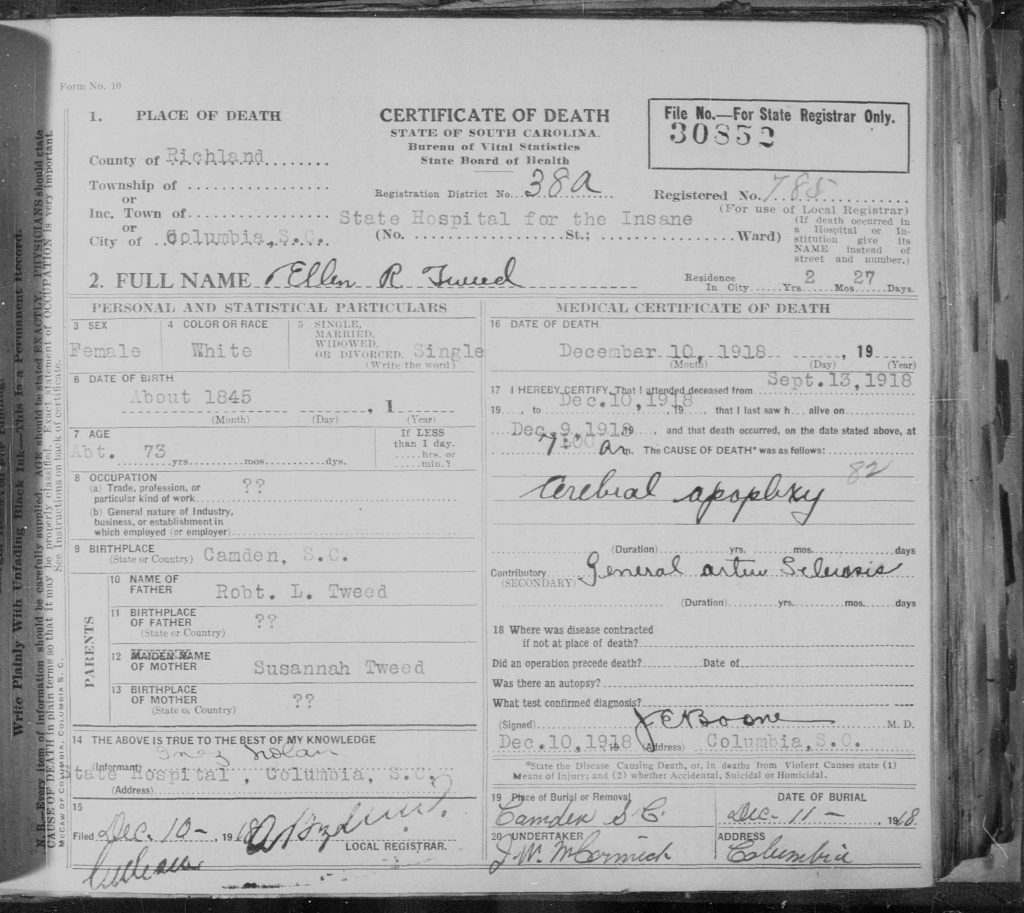 Form No. 10
1. PLACE OF DEATH
County of Richland
Township of
or
Inc. Town of
or
City of Columbia, S.C.
CERTIFICATE OF DEATH
STATE OF SOUTH CAROLINA.
Bureau of Vital Statistics
State Board of Health
Registration District No. 38a
State Hospital for the Insane
(No. St.; Ward)
File No.—For State Registrar Only.
30852
Registered No. 785
(For use of Local Registrar)
(If death occurred in
a Hospital or In-
stitution give its
NAME instead of
street and number.)
2. FULL NAME Ellen R Tweed
Residence
In City Yrs. 2 Mos. 27 Days.
PERSONAL AND STATISTICAL PARTICULARS
3 SEX
Female
4 COLOR OR RACE
White
5 SINGLE,
MARRIED,
WIDOWED,
OR DIVORCED. Single
(Write the word)
6 DATE OF BIRTH
About 1845 , 1
(Month) (Day) (Year)
7 AGE
Abt. 73 yrs. mos. dys.
If LESS
than 1 day.
hrs. or
min.?
8 OCCUPATION
(a) Trade, profession, or
particular kind of work ??
(b) General nature of Industry,
business, or establishment in
which employed (or employer)
9 BIRTHPLACE
(State or Country) Camden, S.C.
PARENTS
10 NAME OF
FATHER Robt. L. Tweed
11 BIRTHPLACE
OF FATHER ??
(State or Country)
12 MAIDEN NAME
OF MOTHER Susannah Tweed
13 BIRTHPLACE
OF MOTHER ??
(State or Country)
14 THE ABOVE IS TRUE TO THE BEST OF MY KNOWLEDGE
(Informant) Nolan
State Hospital, Columbia, S.C.
(Address)
15
Filed Dec. 10- 1918
LOCAL REGISTRAR.
MEDICAL CERTIFICATE OF DEATH
16 DATE OF DEATH
Decembar 10, 1918 , 19
(Month) (Day) (Year)
17 I HEREBY CERTIFY, That I attended deceased from Sept.13,1918
19 , to Dec.10,1918 19 , that I last saw h alive on
Dec.9,1918 19 , and that death occurred, on the date stated above, at
7:00 a m. The CAUSE OF DEATH* was as follows:
82
Cerebral apoplexy
(Duration) yrs. mos. days
Contributory General arterio Sclerosis
(SECONDARY)
(Duration) yrs. mos. days
18 Where was disease contracted
if not at place of death?
Did an operation precede death? Date of
Was there an autopsy?
What test confirmed diagnosis?
(Signed) J E Boone M. D.
Dec.10,1918 (Address) Columbia,S.C.
*State the Disease Causing Death, or, in deaths from Violent Causes state (1)
Means of Injury; and (2) whether Accidental, Suicidal or Homicidal.
19 Place of Burial or Removal
Camden S C.
DATE OF BURIAL
Dec- 11- 1918
20 UNDERTAKER
J. W. McCormick
ADDRESS
Columbia
Write Plainly With Unfading Black Ink—This Is a Permanent Record.
N. B.—Every item of information should be carefully supplied. AGE should be stated EXACTLY. PHYSICIANS should state
CAUSE OF DEATH in plain terms so that it may be properly classified. Exact statement of OCCUPATION is very important.
See Instructions on back of certificate.
McCAW OF COLUMBIA, COLUMBIA S. C.